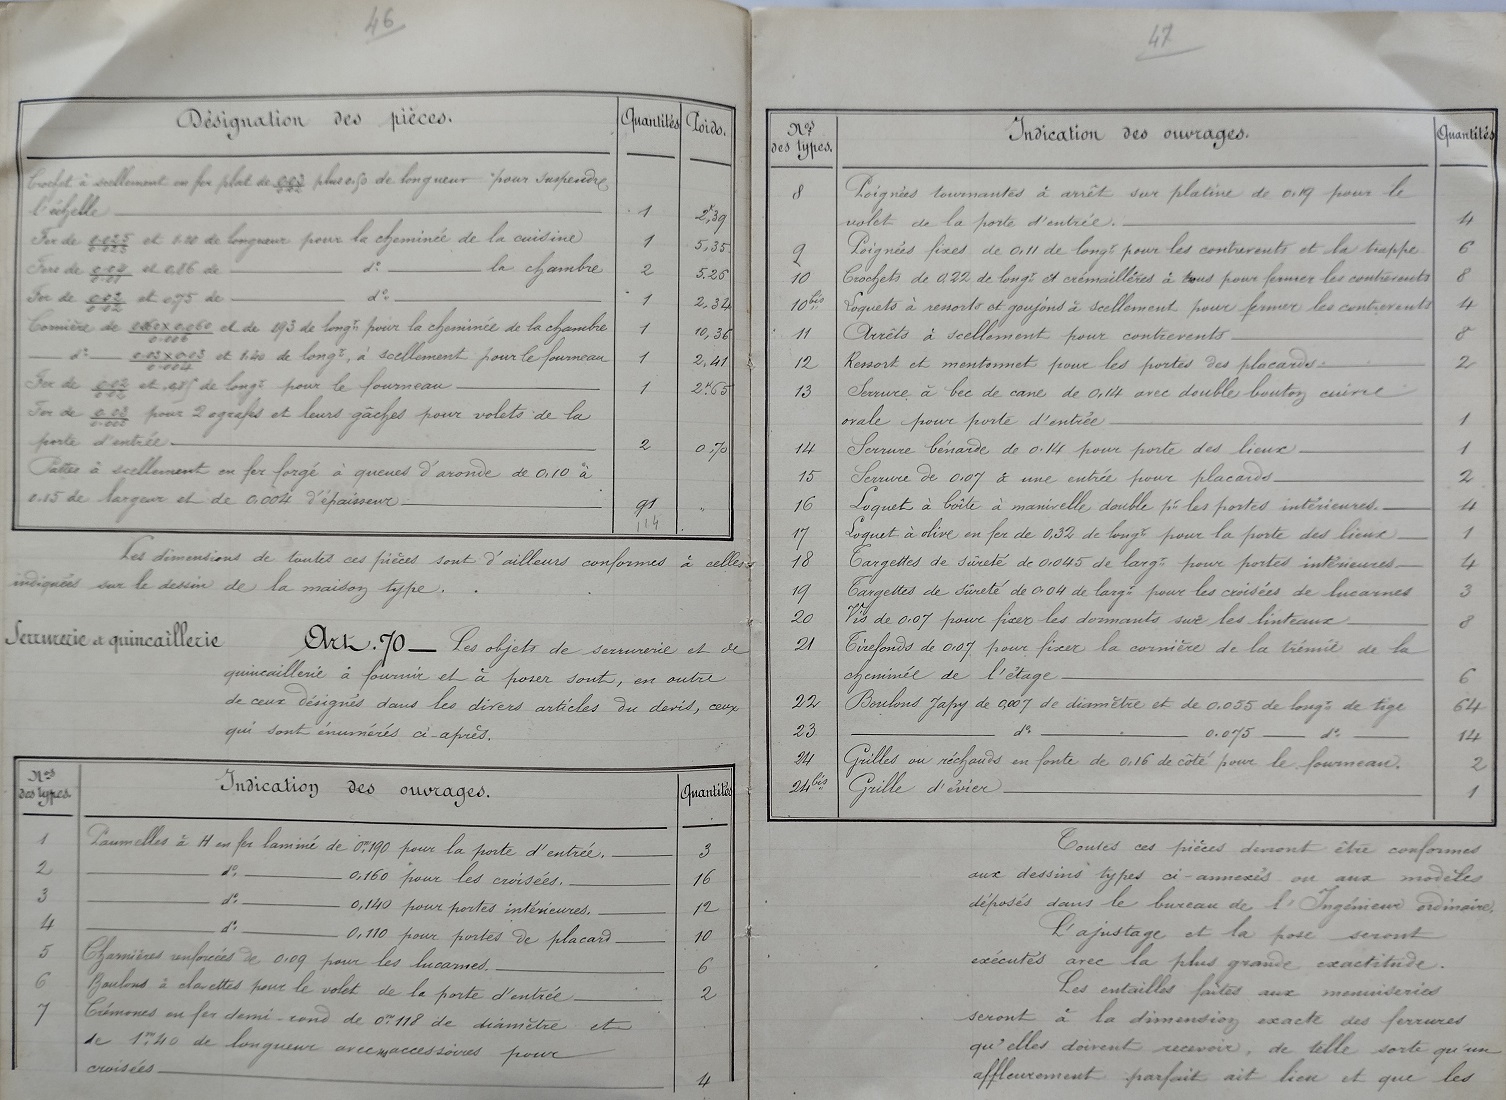 46
Désignation des pièces. Quantités Poids.
Crochet à scellement en fer plat de 0.03/0.02 plus 0.50 de longueur pour suspendre
l'échelle 1 2ᵏ,39
Fer de et 1.10 de longueur pour la cheminée de la cuisine 1 5,35
Fers de et 0,86 de dº la chambre 2 5.26
Fer de 0.02/0.02 et 0,75 de dº 1 2,34
Cornière de 0.060 x 0.060/0.006 et de 1,93 de longʳ pour la cheminée de la chambre 1 10,36
dº 0.03 x 0.03/0.004 et 1.40 de longʳ, à scellement pour le fourneau 1 2,41
Fer de 0.02/0.02 et 0.85 de longʳ pour le fourneau 1 2ᵏ.65
Fer de pour 2 agrafes et leurs gâches pour volets de la
porte d'entrée 2 0.70
Pattes à scellement en fer forgé à queues d'aronde de 0,10 à
0.15 de largeur et de 0,004 d'épaisseur 91 "
114
Les dimensions de toutes ces pièces sont d'ailleurs conformes à celles
indiquées sur le dessin de la maison type.
Serrurerie et quincaillerie Art. 70 — Les objets de serrurerie et de
quincaillerie à fournir et à poser sont, en outre
de ceux désignés dans les divers articles du devis, ceux
qui sont énumérés ci-après.
Nos des types. Indication des ouvrages. Quantités
1 Paumelles à H en fer laminé de 0ᵐ190 pour la porte d'entrée. 3
2 dº 0,160 pour les croisées. 16
3 dº 0,140 pour portes intérieures. 12
4 dº 0,110 pour portes de placard 10
5 Charnières renforcées de 0,09 pour les lucarnes. 6
6 Boulons à clavettes pour le volet de la porte d'entrée 2
7 Crémones en fer demi-rond de 0ᵐ118 de diamètre et
de 1ᵐ40 de longueur avec accessoires pour
croisées 4
47
Nos des types. Indication des ouvrages. Quantités
8 Poignées tournantes à arrêt sur platine de 0,19 pour le
volet de la porte d'entrée. 4
9 Poignées fixes de 0,11 de longʳ pour les contrevents et la trappe 6
10 Crochets de 0,22 de longʳ et crémaillères à pour fermer les contrevents 8
10 bis Loquets à ressorts et goujons à scellement pour fermer les contrevents 4
11 Arrêts à scellement pour contrevents 8
12 Ressort et mentonnet pour les portes des placards 2
13 Serrure à bec de cane de 0,14 avec double bouton cuivre
ovale pour porte d'entrée 1
14 Serrure bénarde de 0.14 pour porte des lieux 1
15 Serrure de 0.07 à une entrée pour placards 2
16 Loquet à boîte à manivelle double pʳ les portes intérieures. 4
17 Loquet à olive en fer de 0,32 de longʳ pour la porte des lieux 1
18 Targettes de sûreté de 0.045 de largʳ pour portes intérieures 4
19 Targettes de sûreté de 0.04 de largʳ pour les croisées de lucarnes 3
20 Vis de 0.07 pour fixer les dormants sur les linteaux 8
21 Tirefonds de 0.07 pour fixer la cornière de la trémie de la
cheminée de l'étage 6
22 Boulons Japy de 0,007 de diamètre et de 0.055 de longʳ de tige 64
23 dº 0.075 dº 14
24 Grilles ou réchauds en fonte de 0,16 de côté pour le fourneau. 2
24 bis Grille d'évier 1
Toutes ces pièces devront être conformes
aux dessins types ci-annexés ou aux modèles
déposés dans le bureau de l'Ingénieur ordinaire.
L'ajustage et la pose seront
exécutés avec la plus grande exactitude.
Les entailles faites aux menuiseries
seront à la dimension exacte des ferrures
qu'elles doivent recevoir, de telle sorte qu'un
affleurement parfait ait lieu et que les